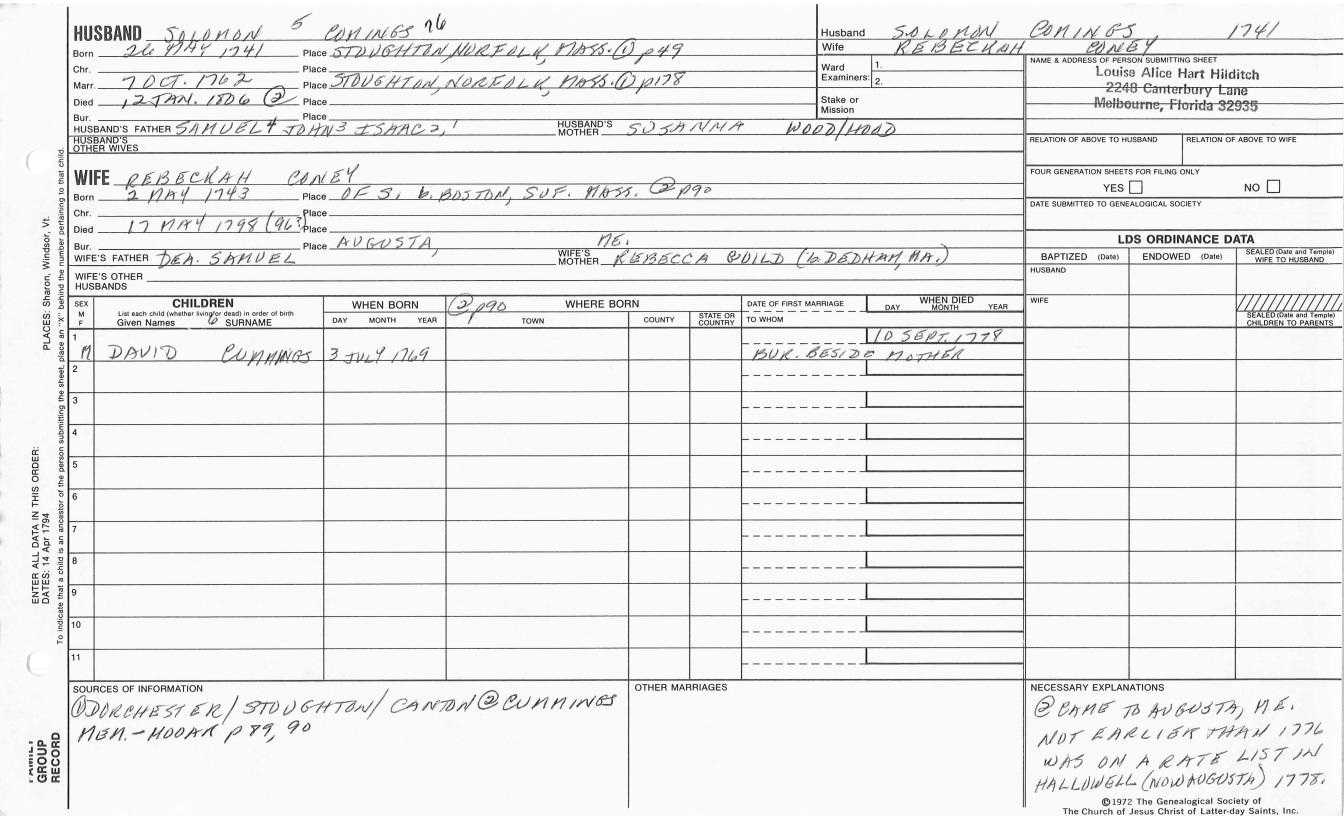 HUSBAND SOLOMON 5 COMINGS 76
Born 26 MAY 1741 Place STOUGHTON, NORFOLK, MASS. ① p49
Chr. Place
Marr. 7 OCT. 1762 Place STOUGHTON, NORFOLK, MASS. ① p178
Died 12 JAN. 1806 ② Place
Bur. Place
HUSBAND'S FATHER SAMUEL 4 JOHN 3 ISAAC 2, 1 HUSBAND'S MOTHER SUSANNA WOOD/HOOD
HUSBAND'S OTHER WIVES
WIFE REBECKAH CONEY
Born 2 MAY 1743 Place OF S. b. BOSTON, SUF. MASS. ② p90
Chr. Place
Died 17 MAY 1798 (96?) Place
Bur. Place AUGUSTA, ME.
WIFE'S FATHER DEA. SAMUEL WIFE'S MOTHER REBECCA GUILD (b. DEDHAM, MA.)
WIFE'S OTHER HUSBANDS
Husband SOLOMON COMINGS, 1741
Wife REBECKAH CONEY
Ward Examiners: 1. 2.
Stake or Mission
NAME & ADDRESS OF PERSON SUBMITTING SHEET
Louise Alice Hart Hilditch
2248 Canterbury Lane
Melbourne, Florida 32935
RELATION OF ABOVE TO HUSBAND RELATION OF ABOVE TO WIFE
FOUR GENERATION SHEETS FOR FILING ONLY
YES NO
DATE SUBMITTED TO GENEALOGICAL SOCIETY
LDS ORDINANCE DATA
BAPTIZED (Date) ENDOWED (Date) SEALED (Date and Temple) WIFE TO HUSBAND
HUSBAND
WIFE
SEALED (Date and Temple) CHILDREN TO PARENTS
SEX M F
CHILDREN
List each child (whether living or dead) in order of birth
Given Names 6 SURNAME
WHEN BORN
DAY MONTH YEAR
② p90 WHERE BORN
TOWN COUNTY STATE OR COUNTRY
DATE OF FIRST MARRIAGE
TO WHOM
WHEN DIED
DAY MONTH YEAR
1 10 SEPT. 1778
M DAVID CUMMINGS 3 JULY 1769 BUR. BESIDE MOTHER
2
3
4
5
6
7
8
9
10
11
SOURCES OF INFORMATION
① DORCHESTER/STOUGHTON/CANTON ② CUMMINGS
MEM. - MOOAR p 89, 90
OTHER MARRIAGES
NECESSARY EXPLANATIONS
② CAME TO AUGUSTA, ME.
NOT EARLIER THAN 1776
WAS ON A RATE LIST IN
HALLOWELL (NOW AUGUSTA) 1778.
©1972 The Genealogical Society of
The Church of Jesus Christ of Latter-day Saints, Inc.
PLACES: Sharon, Windsor, Vt.
ENTER ALL DATA IN THIS ORDER:
DATES: 14 Apr 1794
To indicate that a child is an ancestor of the person submitting the sheet, place an "X" behind the number pertaining to that child.
FAMILY
GROUP
RECORD